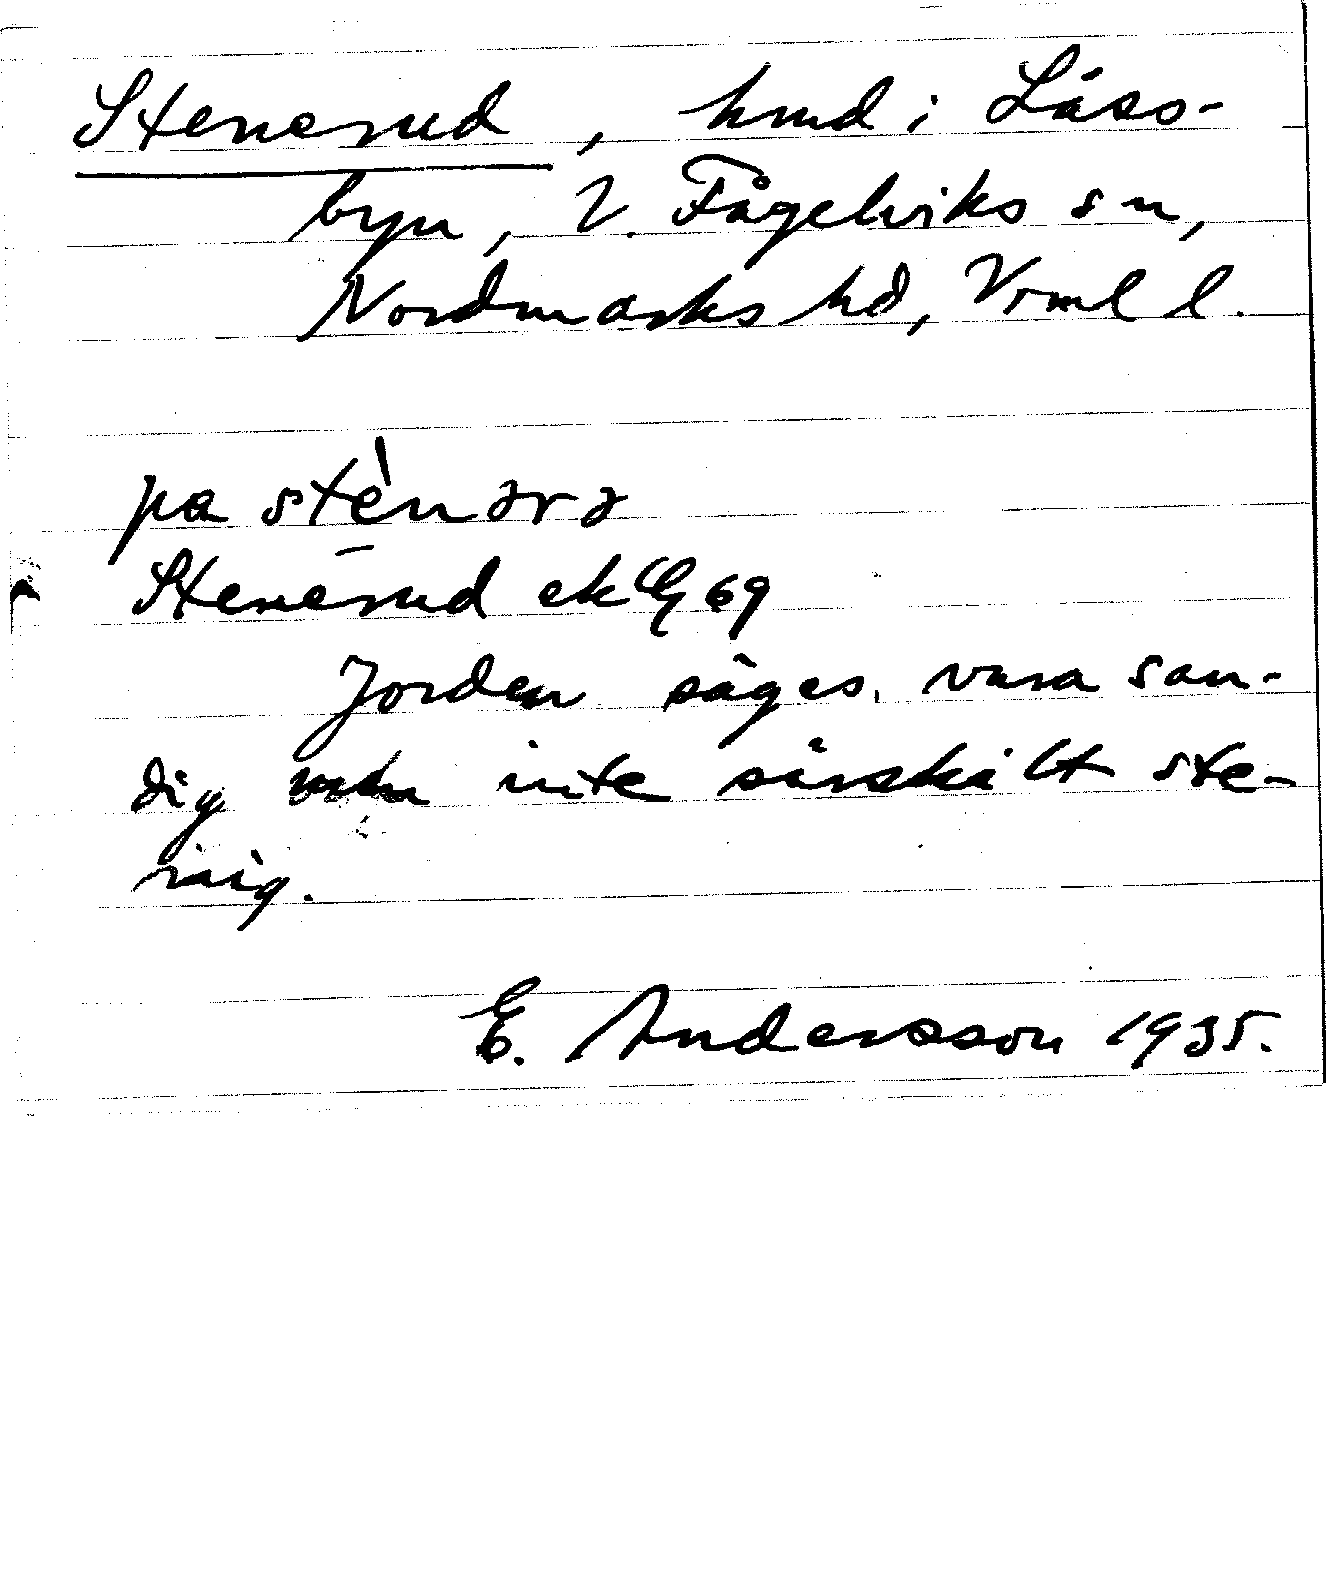 Stenerud, hmd i Låss-
byn, V. Fågelviks sn,
Nordmarks hd, Vrml l.
pa stènərə
Stenerud ek G 69
Jorden säges vara san-
dig men inte särskilt ste-
nig.
E. Andersson 1935.